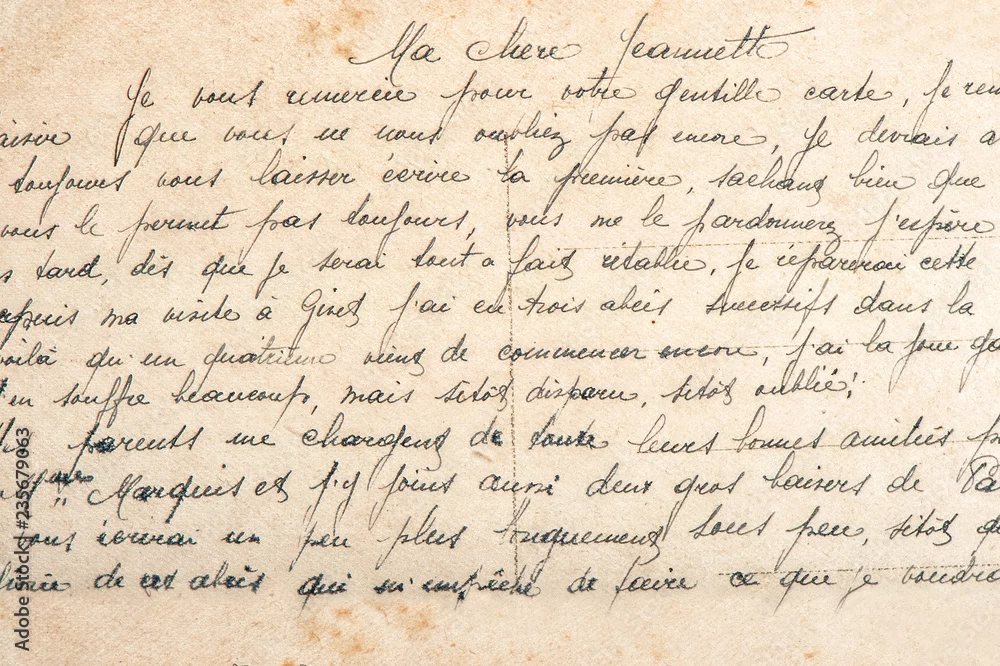 Ma chère Jeannette
Je vous remercie pour votre gentille carte, Je rem
aisir que vous ne nous oubliez pas encore, Je devrais a
toujours vous laisser écrire la première, sachant bien que
vous le permet pas toujours, vous me le pardonnerez j'espère
s tard, dès que je serai tout a fait rétablie, je réparerai cette
epuis ma visite à Givet j'ai eu trois abcès successifs dans la
voilà qu'un quatrième vient de commencer encore, j'ai la joue
en souffre beaucoup, mais sitôt disparu, sitôt oublié!
parents me chargent de toute leurs bonnes amitiés
Marquis et j'y joins aussi deux gros baisers de
vous écrirai un peu plus longuement sous peu, sitôt
de cet abcès qui m'empêche de faire ce que je voudra
Adobe Stock | #235679063